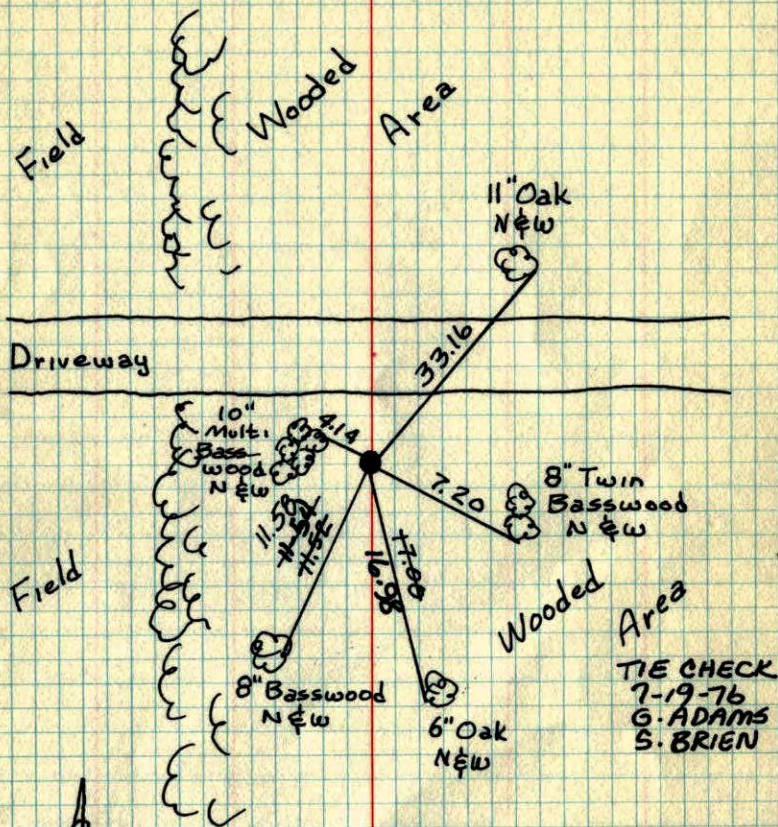 Field
Wooded
Area
11" Oak
N & W
33.16
Driveway
10"
Multi
Bass
wood
N & W
4.14
7.20
8" Twin
Basswood
N & W
11.58
11.54
11.52
17.00
16.98
Field
Wooded
Area
8" Basswood
N & W
6" Oak
N & W
TIE CHECK
7-19-76
G. ADAMS
S. BRIEN